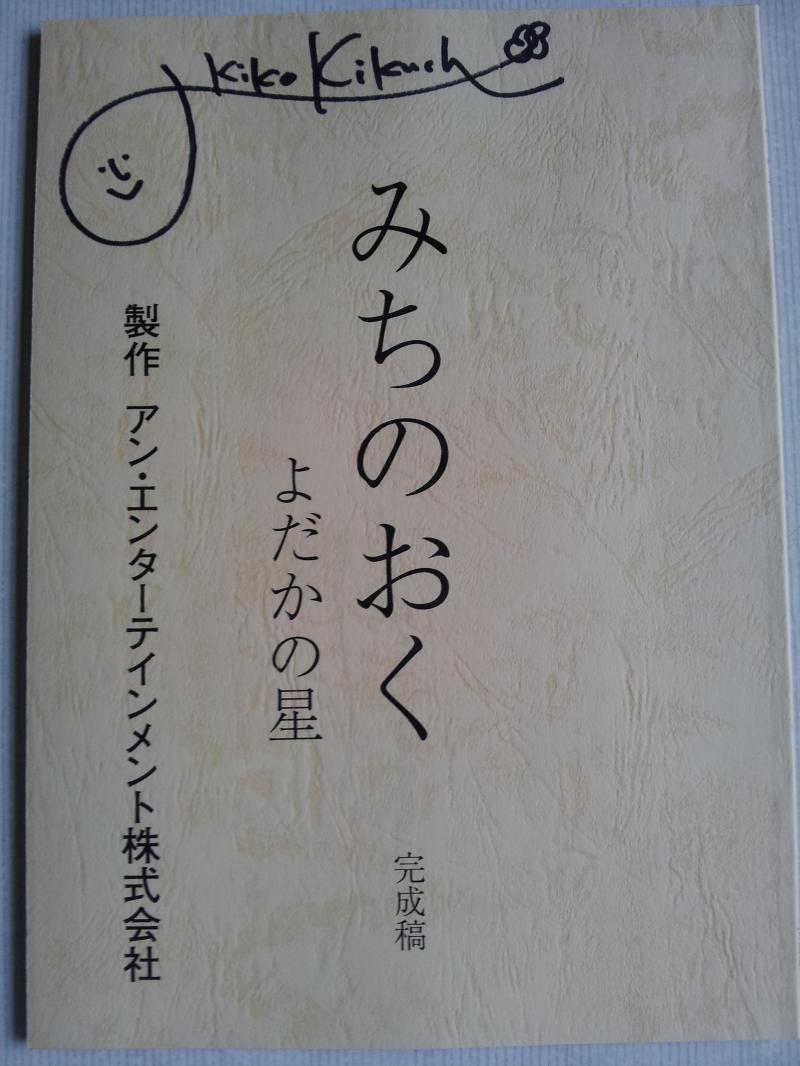 Kiko Kikuch
みちのおく
完成稿
よだかの星
製作 アン・エンターテインメント株式会社